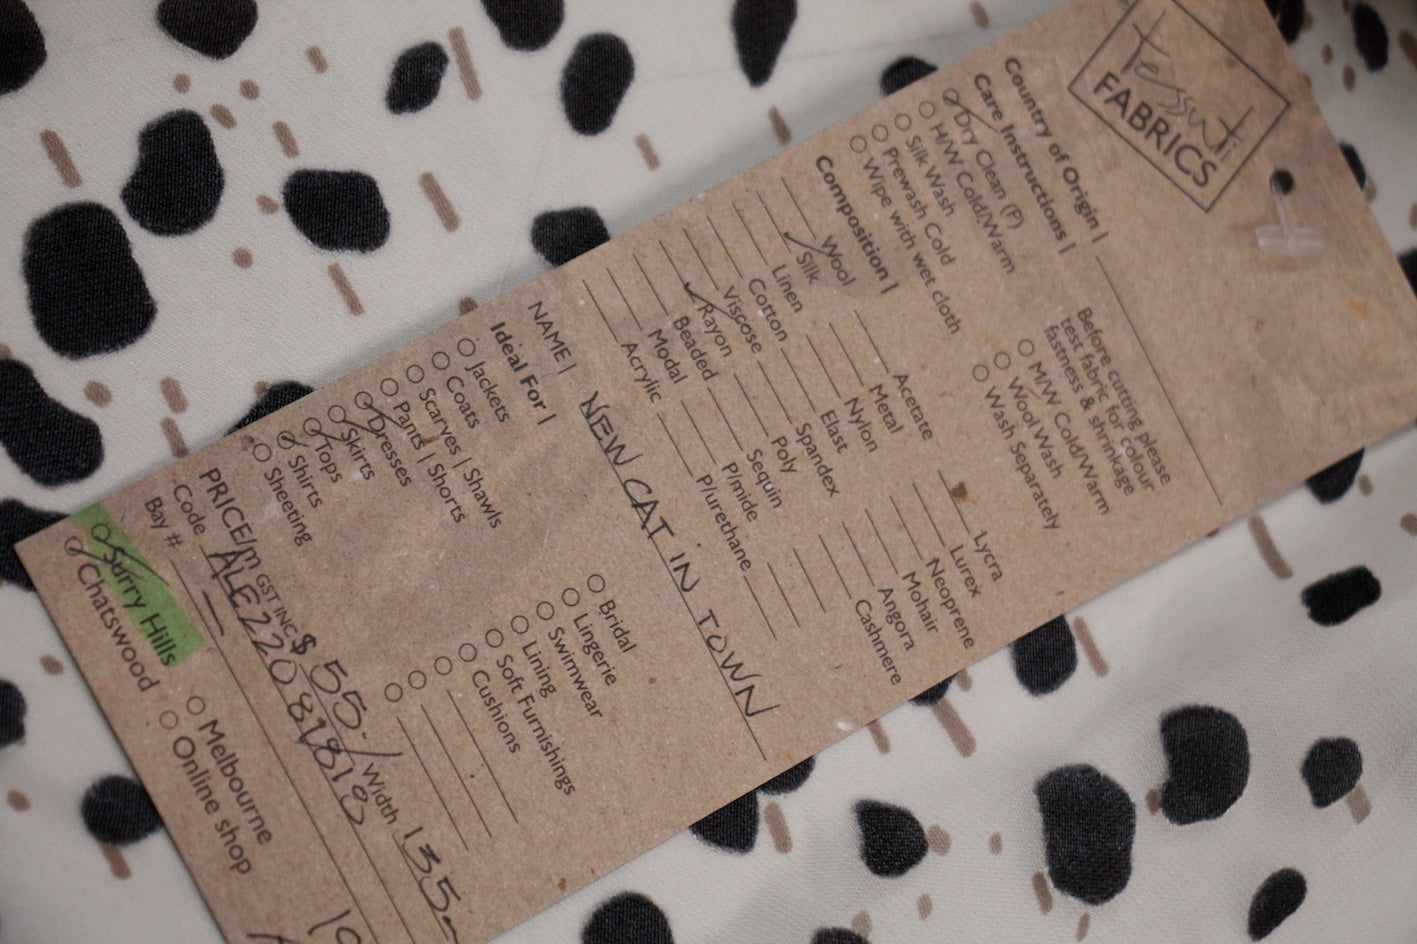 tessuti
FABRICS
Country of Origin |
Care Instructions |
Dry Clean (P)
H/W Cold/Warm
Silk Wash
Prewash Cold
Wipe with wet cloth
Before cutting please
test fabric for colour
fastness & shrinkage
M/W Cold/Warm
Wool Wash
Wash Separately
Composition |
Wool
Silk
Linen
Cotton
Viscose
Rayon
Beaded
Modal
Acrylic
Acetate
Metal
Nylon
Elast
Spandex
Poly
Sequin
P/mide
P/urethane
Lycra
Lurex
Neoprene
Mohair
Angora
Cashmere
NAME | NEW CAT IN TOWN
Ideal For |
Jackets
Coats
Scarves | Shawls
Pants | Shorts
Dresses
Skirts
Tops
Shirts
Sheeting
Bridal
Lingerie
Swimwear
Lining
Soft Furnishings
Cushions
PRICE/m GST INC. $ 55.- / Width 135
Code ALE220
Bay #
Surry Hills
Chatswood
Melbourne
Online shop